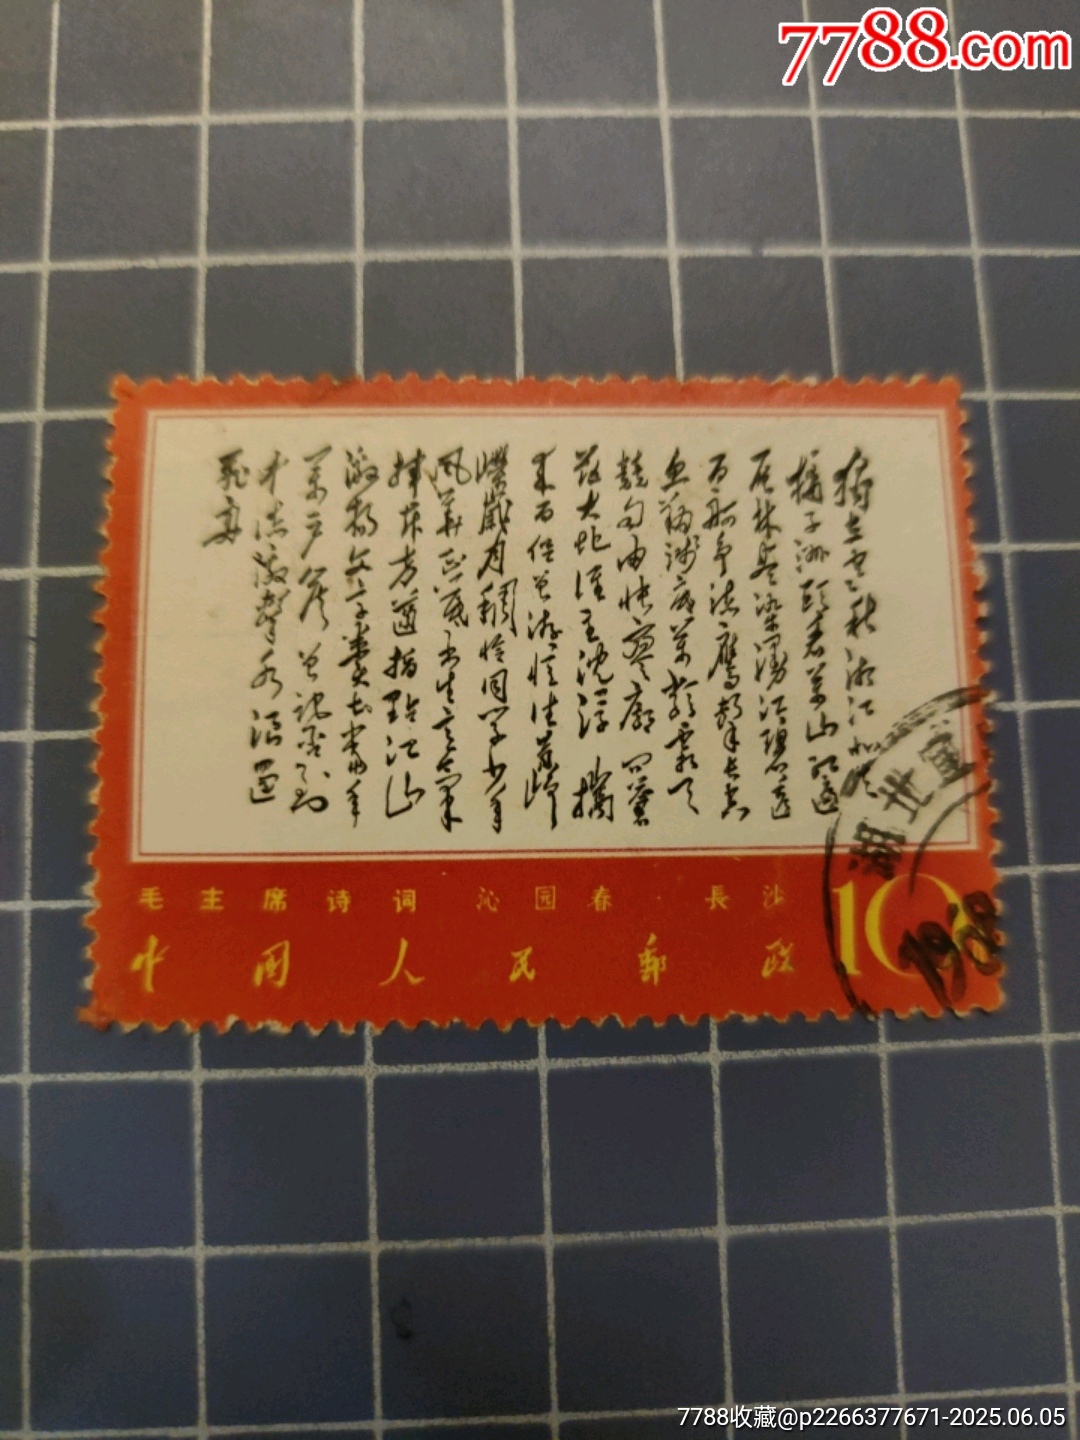 7788.com
獨立寒秋湘江北去
橘子洲頭看萬山紅遍
层林盡染漫江碧透
百舸争流鷹擊長空
魚翔淺底萬類霜天
競自由怅寥廓問蒼
茫大地誰主沈浮 攜
来百侣曾游憶往昔崢
嶸歲月稠恰同学少年
风華正茂书生意氣
揮斥方遒指點江山
激揚文字糞土當年
萬户侯曾記否到
中流擊水浪遏
飛舟
毛主席诗词 沁园春 長沙
中国人民郵政
10
湖北宜
1968
7788收藏@p2266377671-2025.06.05